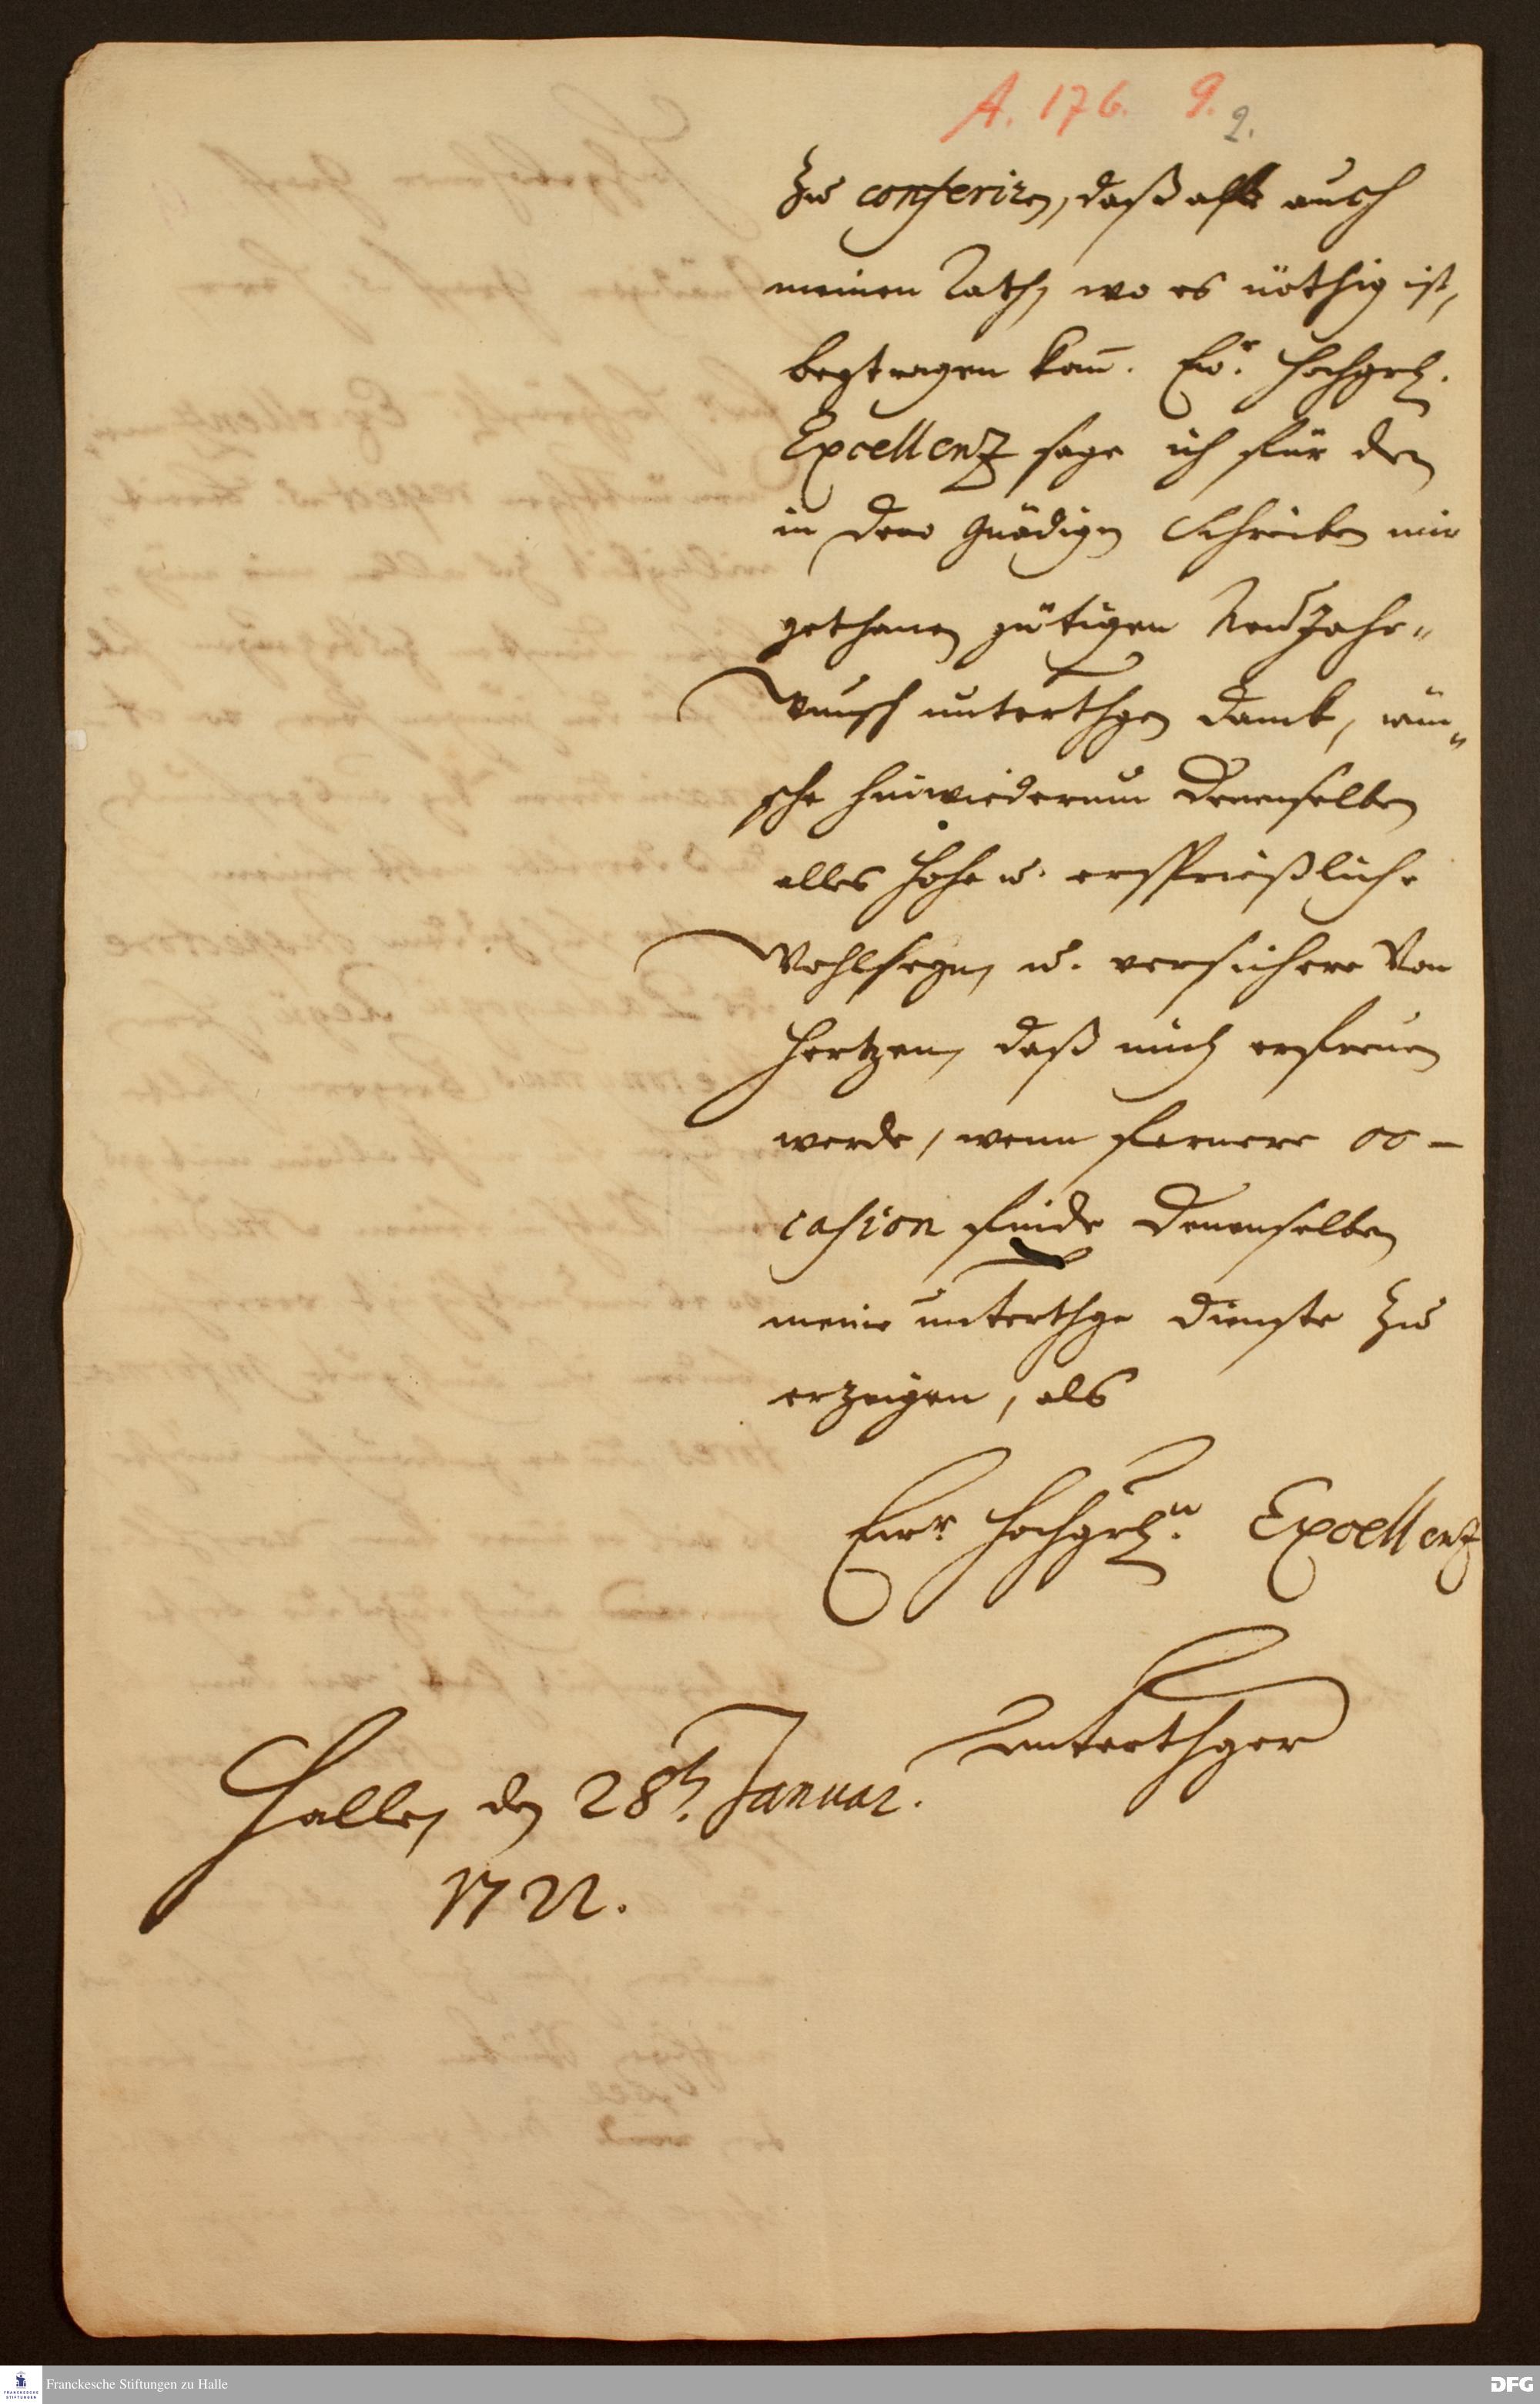 A. 176. 9.
2.
zu conferiren, daß also auch
meinen Rath, wo es nöthig ist,
beytragen kan̄. Ew.r Hochgrl.
Excellenz sage ich für den
in Dero Gnädigen Schreiben mir
gethanen gütigen Neu Jahr-
Wunsch unterthgen Danck, wün-
sche hinwiederum Denenselben
alles hohe u. ersprießliche
Wohlseyn, u. versichere von
Hertzen, daß mich erfreuen
werde, wenn fernere oc-
casion finde Denenselben
meine unterthge Dienste zu
erzeigen, als
Ewr. Hochgrl.n Excellenz
Unterthger
Halle, den 28t. Januar.
1722.
Franckesche Stiftungen zu Halle
DFG